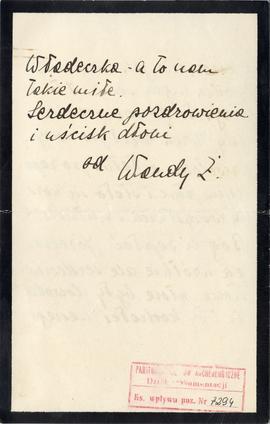 Władeczka - a to nam
takie miłe.
Serdeczne pozdrowienia
i uścisk dłoni
od Wandy Ż.
ARCHEOLOGICZNE
Dział Dokumentacji
Ks. wpływu poz. Nr 7294